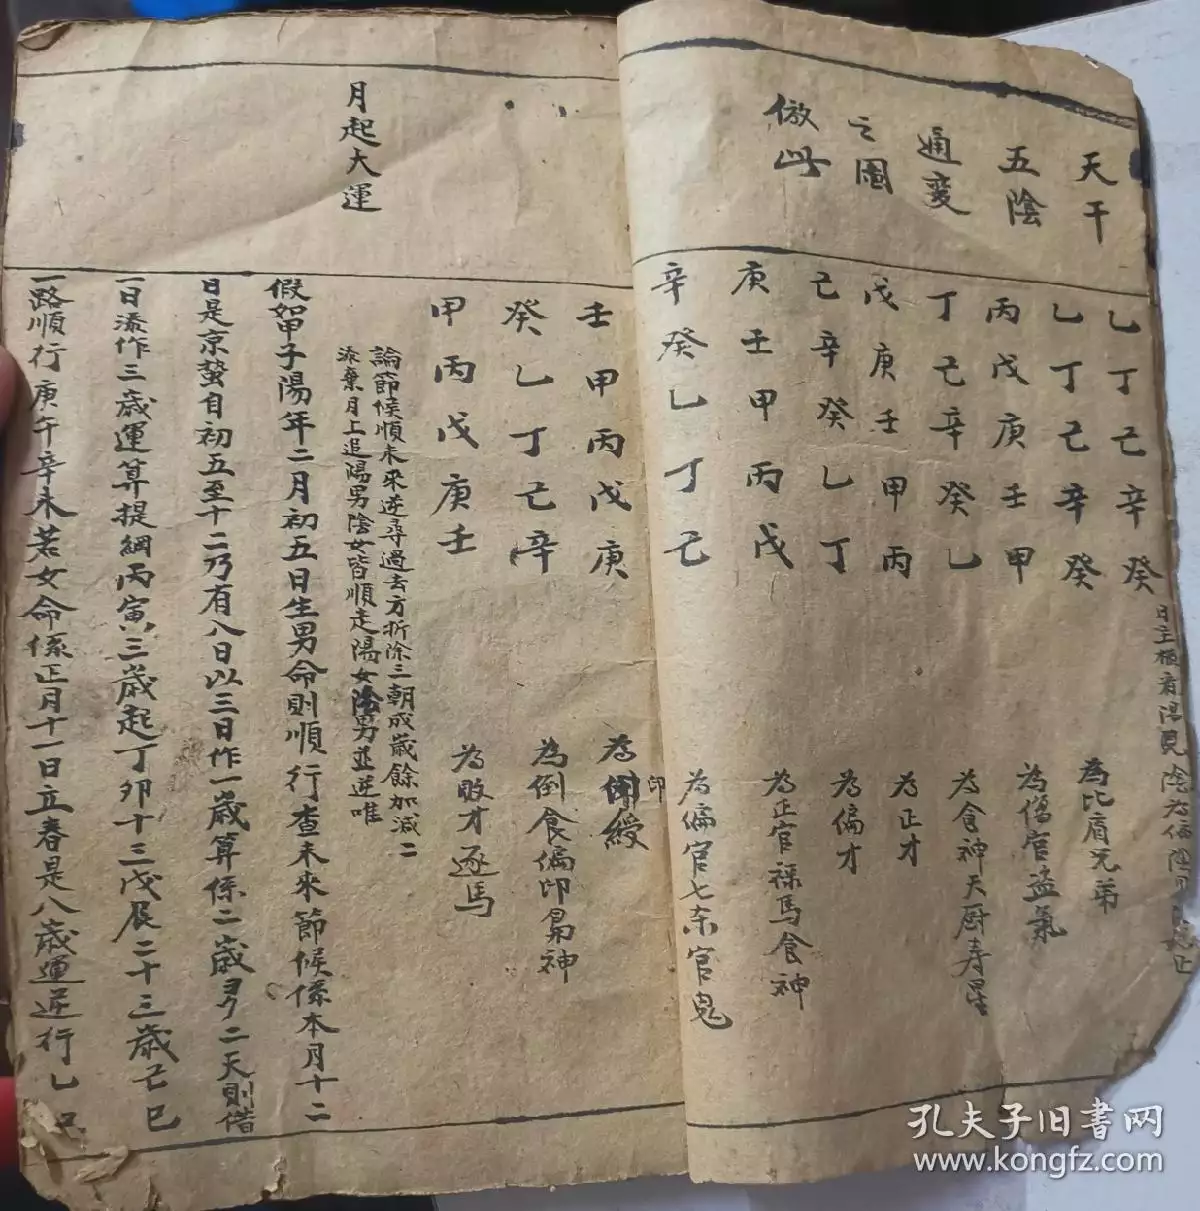 天干
五陰
通变
之圖
倣此
乙丁己辛癸
乙丁己辛癸
為比肩兄弟
丙戊庚壬甲
為傷官盗氣
丁己辛癸乙
為食神天厨寿星
戊庚壬甲丙
為正才
己辛癸乙丁
為偏才
庚壬甲丙戊
為正官祿馬食神
辛癸乙丁己
為偏官七杀官鬼
壬甲丙戊庚
為印綬
癸乙丁己辛
為倒食偏印梟神
甲丙戊庚壬
為敗才逐馬
月起大運
論節候順未來逆尋過去方折除三朝成歲餘加减二
添棄月上追陽男陰女皆順走陽女陰男並逆唯
假如甲子陽年二月初五日生男命則順行查未來節候係本月十二
日是京蟄自初五至十二乃有八日以三日作一歲算係二歲ヨク二天則借
一日添作三歲運算提綱丙寅三歲起丁卯十三戊辰二十三歲己巳
一路順行庚午辛未若女命係正月十一日立春是八歲運逆行乙
孔夫子旧書网
www.kongfz.com